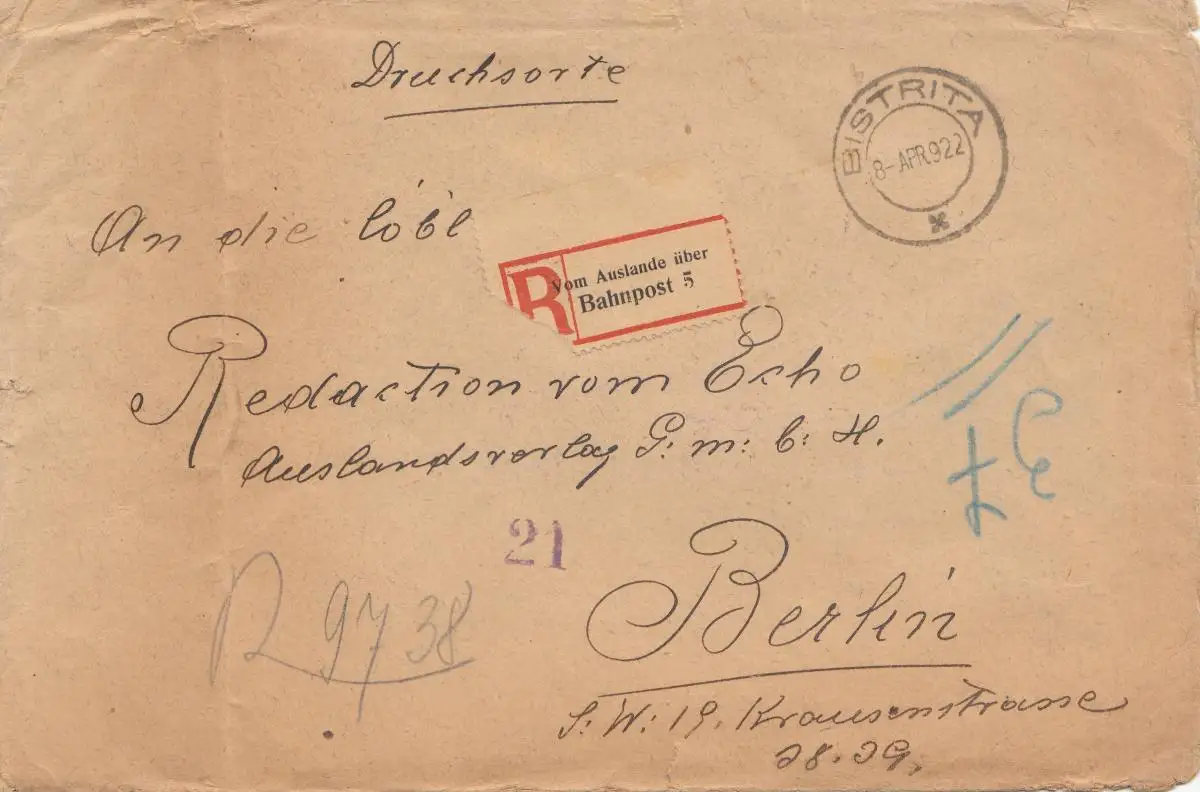 Drucksorte
BISTRITA
8-APR.922
An die löbl
R
Vom Auslande über
Bahnpost 5
Redaction vom Echo
Auslandsverlag G: m: b: H.
21
Berlin
R 9738
S: W: 19. Krausenstrasse
38.39.